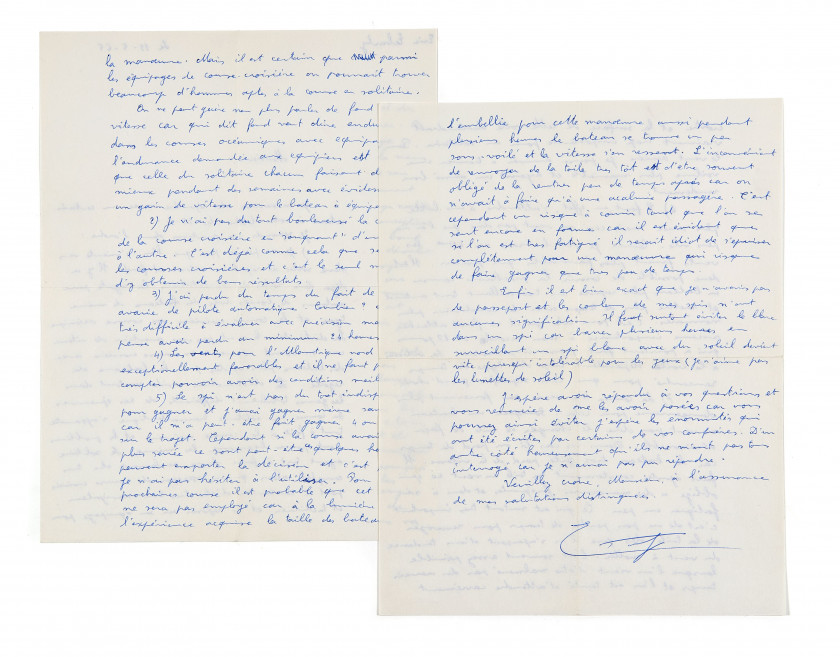 la manœuvre. Mais il est certain que parmi
les équipages de course-croisière on pourrait trouver
beaucoup d'hommes aptes à la course en solitaire.
On ne peut guère non plus parler de fond
vitesse car qui dit fond veut dire endu
dans les courses océaniques avec équipa
l'endurance demandée aux équipiers est
que celle du solitaire chacun faisant d
mieux pendant des semaines avec évidem
un gain de vitesse pour le bateau à équipa
2) Je n'ai pas du tout bouleversé la c
de la course croisière en "sanglant" d'un
à l'autre. C'est déjà comme cela que se
les courses croisières et c'est le seul m
d'y obtenir de bons résultats.
3) J'ai perdu du temps du fait de
avarie de pilote automatique. Combien?
très difficile à évaluer avec précision ma
pense avoir perdu au minimum 24 heures
4) Les vents pour l'Atlantique nord
exceptionnellement favorables et il ne faut p
compter pouvoir avoir des conditions meil
5) Le spi n'est pas du tout indisp
pour gagner et j'aurai gagné même san
car il m'a peut-être fait gagner 4 ou
sur le trajet. Cependant si la course avai
plus serrée ce sont peut-être quelques he
peuvent emporter la décision et c'est p
je n'ai pas hésiter à l'utiliser. Pour
prochaines course il est probable que cet
ne sera pas employé car à la lumière
l'expérience acquise la taille des bateau
l'embellie pour cette manœuvre aussi pendant
plusieurs heures le bateau se trouve un peu
sous-voilé et la vitesse s'en ressent. L'inconvénient
de renvoyer de la toile très tôt est d'être souvent
obligé de la rentrer peu de temps après car on
n'avait à faire qu'à une acalmie passagère. C'est
cependant un risque à courir tant que l'on se
sent encore en forme car il est évident que
si l'on est très fatigué il serait idiot de s'épuiser
complètement pour une manœuvre qui risque
de faire gagner que très peu de temps.
Enfin il est bien exact que je n'avais pas
de passeport et les couleurs de mes spis n'ont
aucunes signification. Il faut surtout éviter le blanc
dans un spi car barrer plusieurs heures en
surveillant un spi blanc avec du soleil devient
vite presqu'intolérable pour les yeux (je n'aime pas
les lunettes de soleil)
J'espère avoir répondu à vos questions et
vous remercie de me les avoir posées car vous
pourrez ainsi éviter j'espère les énormités qui
ont été écrites par certains de vos confrères. D'un
autre côté heureusement qu'ils ne m'aient pas tous
interrogé car je n'aurai pas pu répondre.
Veuillez croire, Monsieur, à l'assurance
de mes salutations distinguées.